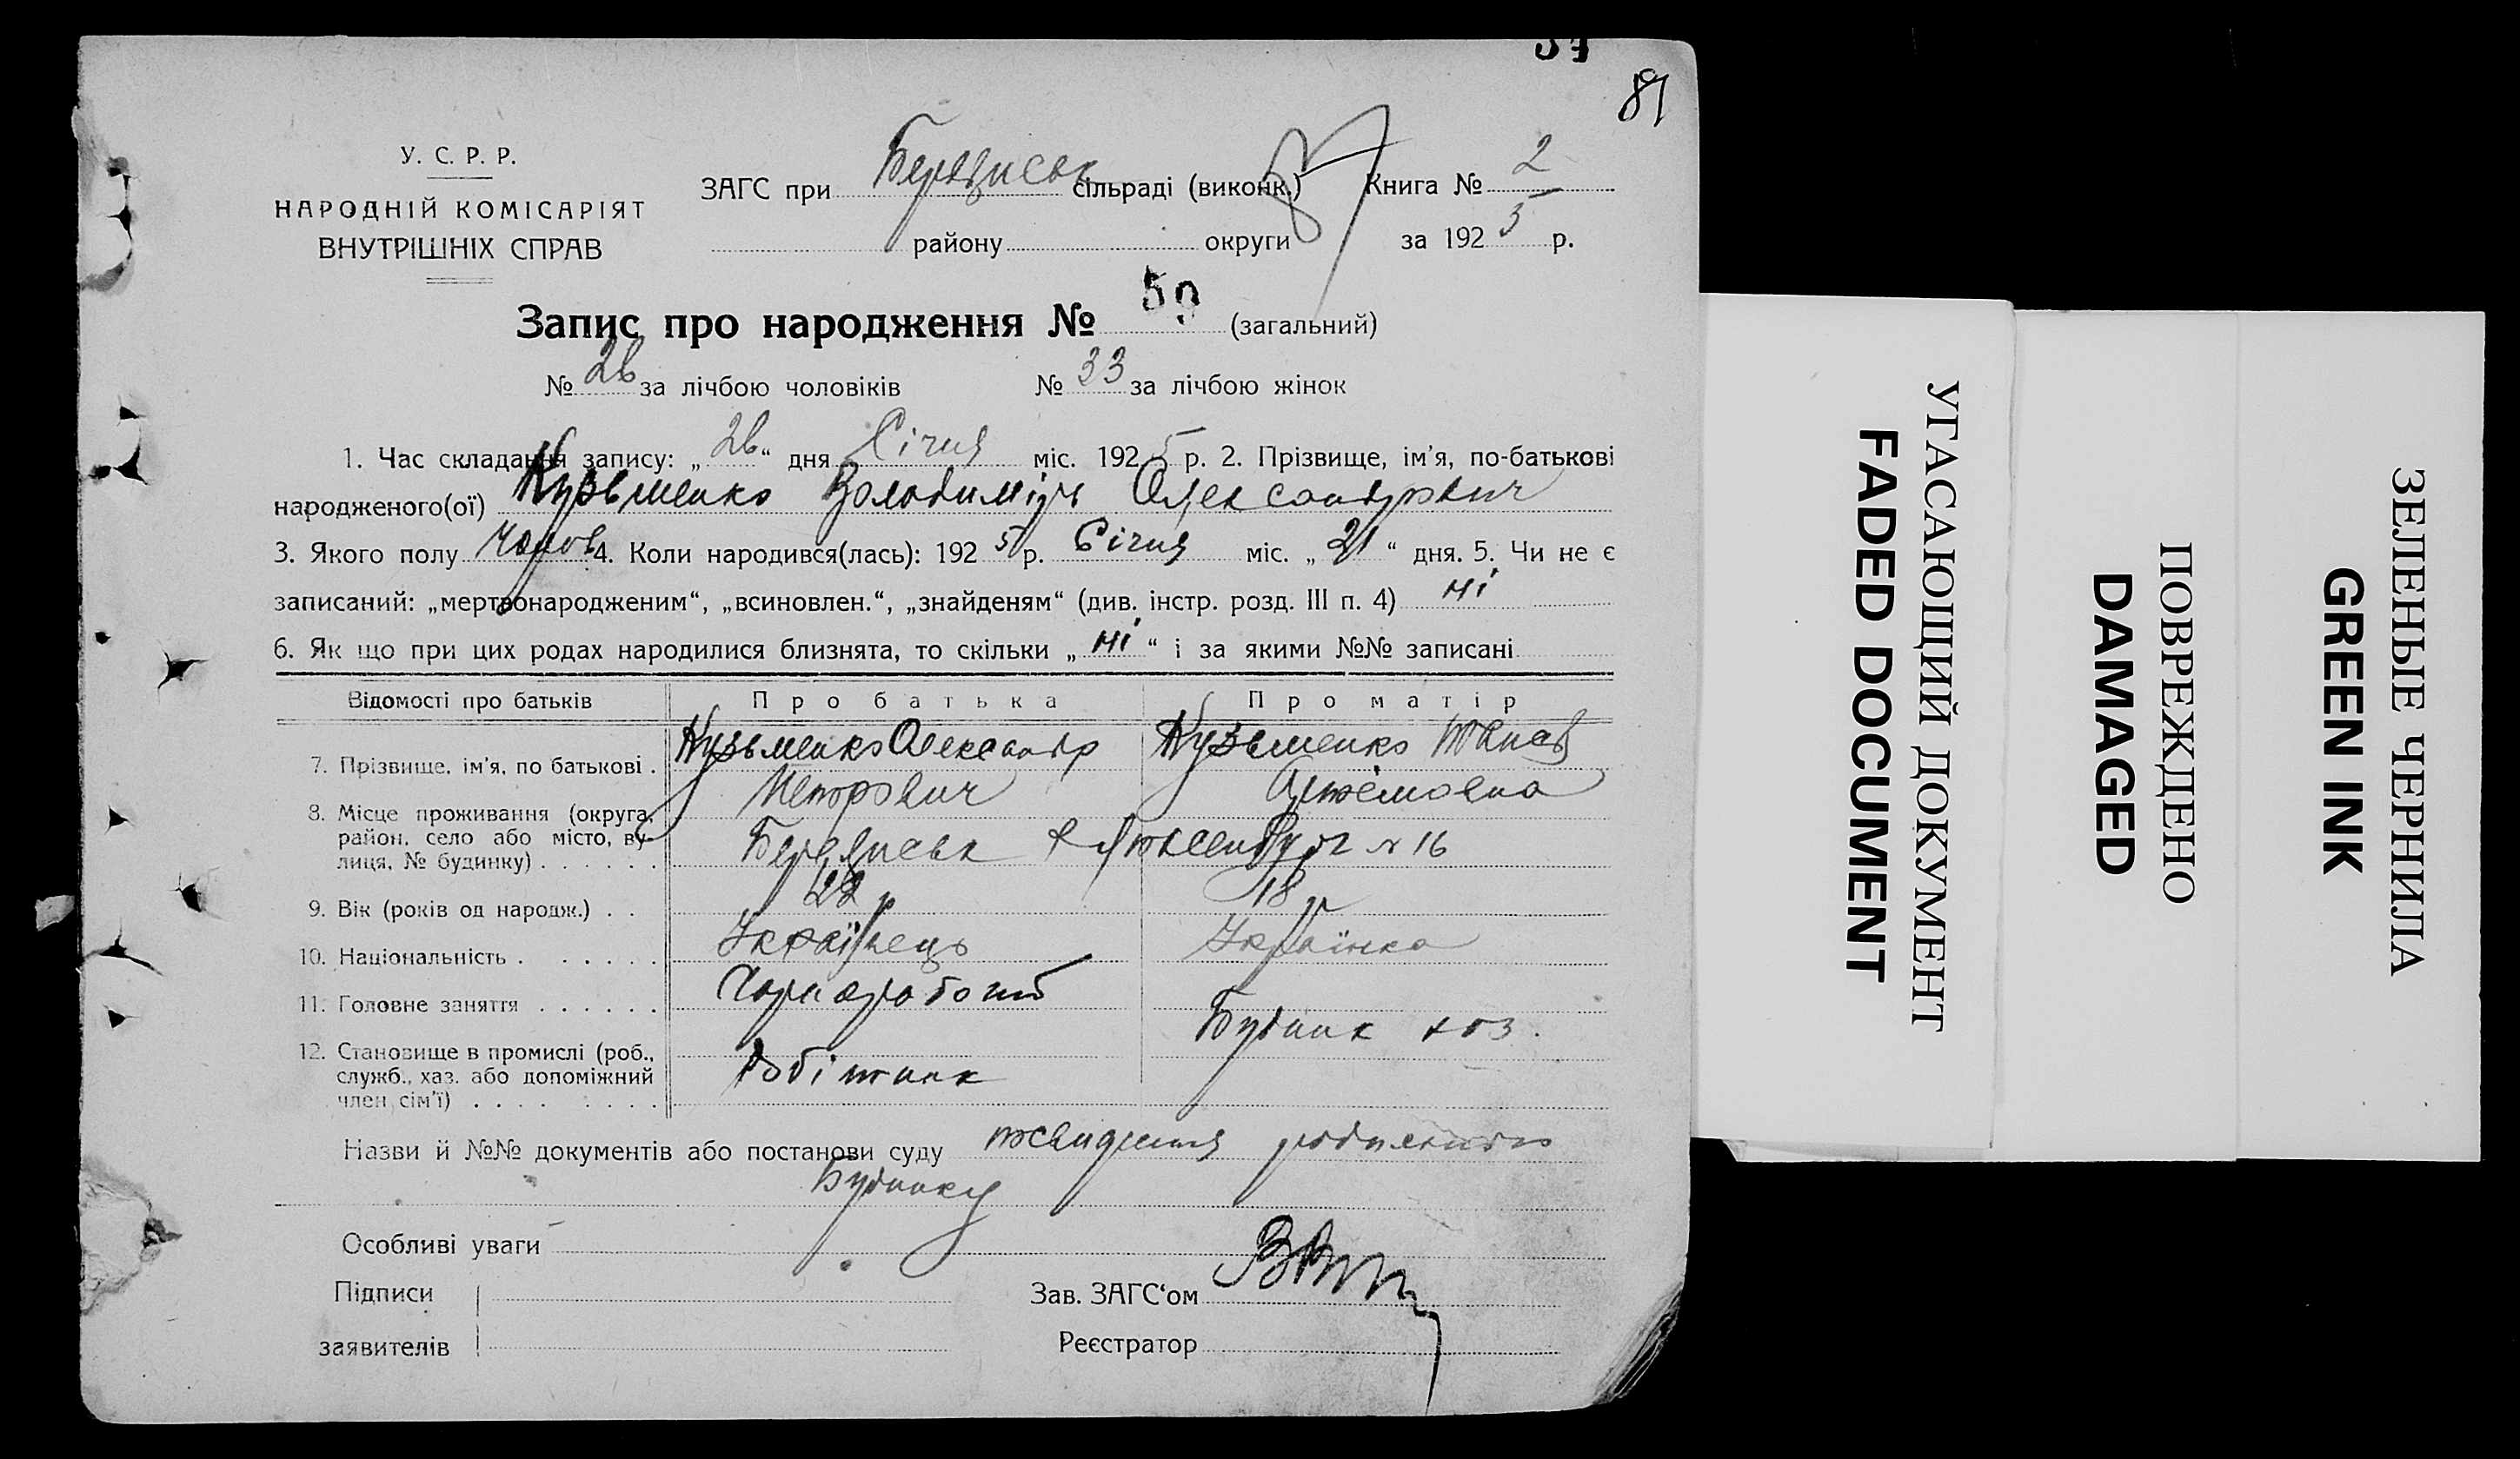 87
У. С. Р. Р.
НАРОДНІЙ КОМІСАРІЯТ
ВНУТРІШНІХ СПРАВ
ЗАГС при сільраді (виконк.) 87 Книга № 2
району округи за 1925 р.
Запис про народження № 59 (загальний)
№ 26 за лічбою чоловіків № 33 за лічбою жінок
1. Час складання запису: „26“ дня Січня міс. 1925 р. 2. Прізвище, ім’я, по-батькові
народженого(ої) Кузьменко Володимір Олександрович
3. Якого полу 4. Коли народився(лась): 1925 р. Січня міс. „21“ дня. 5. Чи не є
записаний: „мертвонародженим“, „всиновлен.“, „знайденям“ (див. інстр. розд. III п. 4) ні
6. Як що при цих родах народилися близнята, то скільки „ні“ і за якими №№ записані
Відомості про батьків Про батька Про матір
7. Прізвище, ім’я, по батькові . Кузьменко Олександр Кузьменко
Петрович Артёмовна
8. Місце проживання (округа,
район, село або місто, ву-
лиця, № будинку) . . . . . . Люксенбург № 16
9. Вік (років од народж.) . . 22 р 18 р
10. Національність . . . . . . Українець Українка
11. Головне заняття . . . . . . Чорнороб
Будинк хоз.
12. Становище в промислі (роб.,
служб., хаз. або допоміжний Робітник
член сім’ї) . . . . . . . .
Назви й №№ документів або постанови суду родильного
Будинку
Особливі уваги
Підписи
заявителів
Зав. ЗАГС‘ом
Реєстратор
УГАСАЮЩИЙ ДОКУМЕНТ
FADED DOCUMENT
ПОВРЕЖДЕНО
DAMAGED
ЗЕЛЕНЫЕ ЧЕРНИЛА
GREEN INK